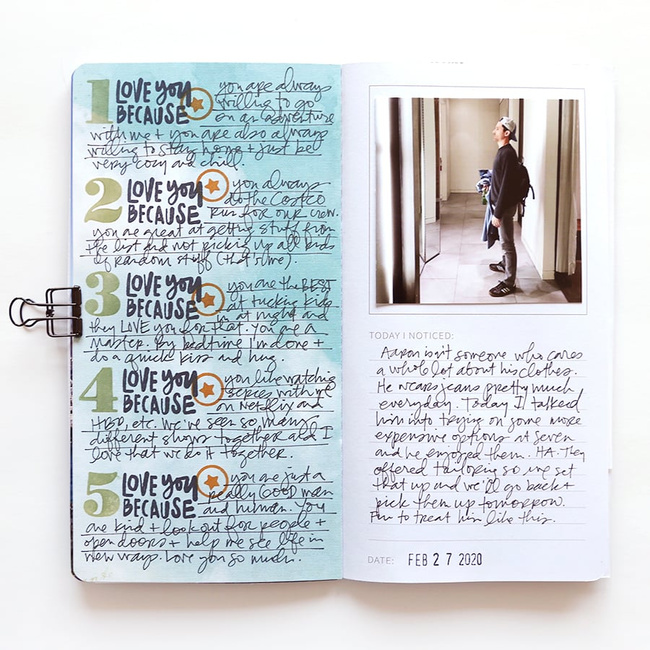 1 LOVE YOU
BECAUSE
you are always
willing to go
on an adventure
with me + you are also always
willing to stay home + just be
very cozy and chill.
2 LOVE YOU
BECAUSE
you always
do the Costco
run for our crew.
you are great at getting stuff from
the list and not picking up all kinds
of random stuff (that's me).
3 LOVE YOU
BECAUSE
you are the BEST
at tucking kids
in at night and
they LOVE you for that. You are a
master. By bedtime I'm done +
do a quick kiss and hug.
4 LOVE YOU
BECAUSE
you like watching
series with me
on Netflix and
HBO, etc. We've seen so many
different shows together and I
love that we do it together.
5 LOVE YOU
BECAUSE
you are just a
really GOOD man
and human. You
are kind + look out for people +
open doors + help me see life in
new ways. Love you so much.
TODAY I NOTICED:
Aaron isn't someone who cares
a whole lot about his clothes.
He wears jeans pretty much
everyday. Today I talked
him into trying on some more
expensive options at Seven
and he enjoyed them. HA. They
offered tailoring so we set
that up and we'll go back +
pick them up tomorrow.
Fun to treat him like this.
DATE: FEB 27 2020